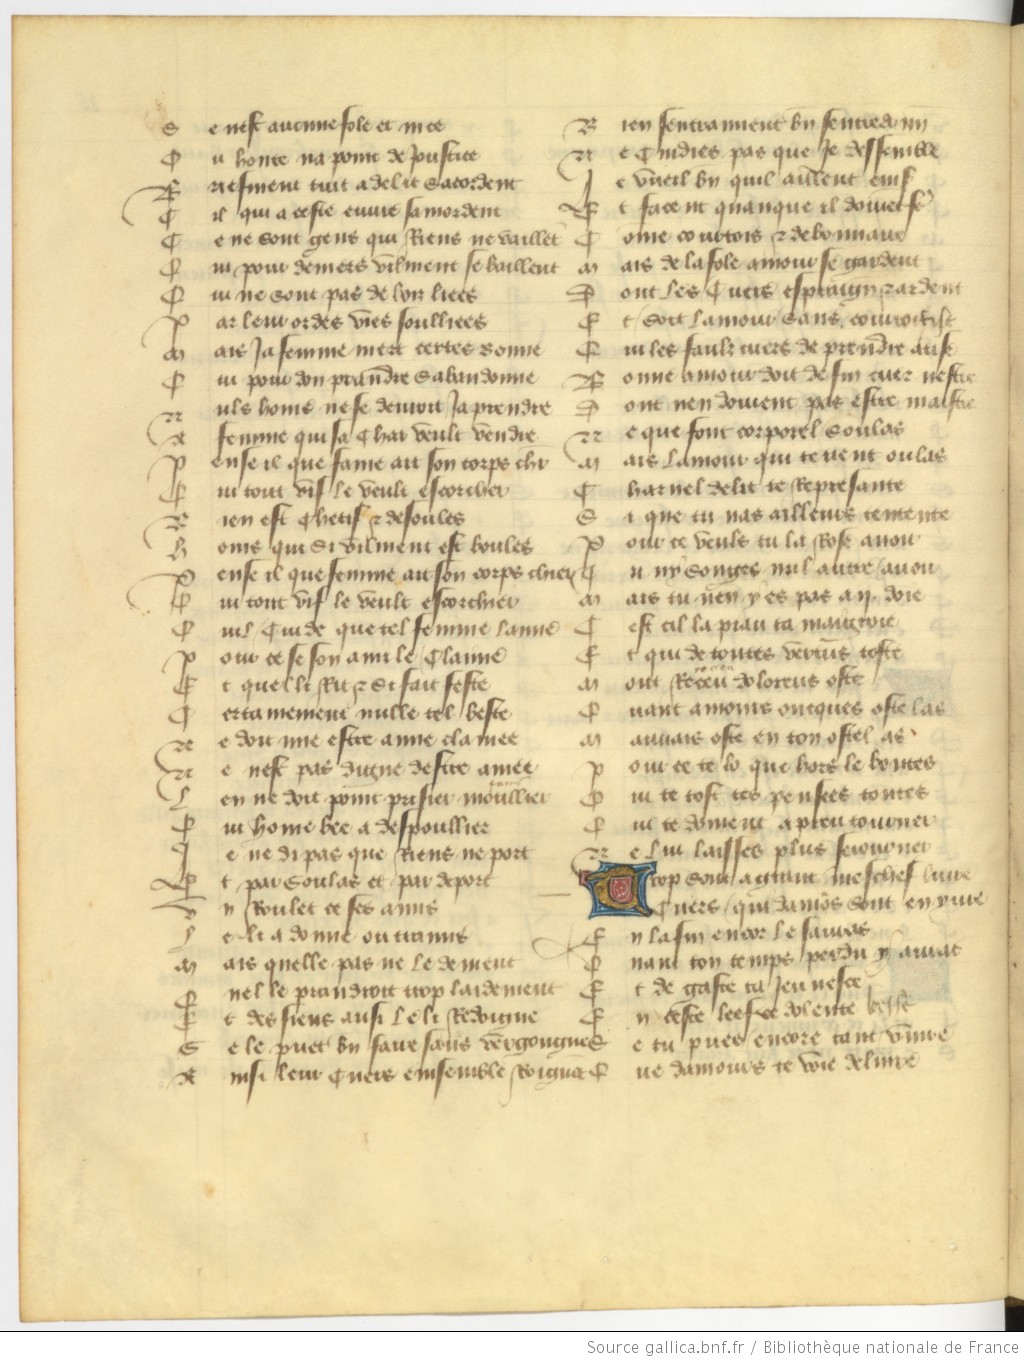 S e nest aucune fole et nice
O u honte na point de Justice
B riefment tuit a delit sacordent
C il qui a ceste euure samordent
C e ne sont gens qui Riens ne vaillet
Q ui pour deniers vilment se baillent
Q ui ne sont pas de loy liees
P ar leur ordes vies soulliees
M ais Ja femme niert certes bonne
Q ui pour don prandre sabandonne
N uls homs ne se deuroit Ja prendre
A femme qui sa Char veult vendre
P ense il que fame ait son corps chr
Q ui tout vif le veult escorcher
B ien est Chetif & desoules
H oms qui si vilment est boules
P ense il que femme ait son corps chier
Q ui tout vif le veult escorchier
Q uil Cuide que tel femme lamie
P our ce se son ami le Claime
E t quel li Rit & si fait feste
C ertainement nulle tel beste
N e doit mie estre amie clamee
N e nest pas digne destre amee
L en ne doit point prisier moullier
Q ui home bee a despoullier
J e ne di pas que Riens ne port
E t par soulas et par deport
V n Roulet ce ses amis
L e li a donne ou tramis
M ais quelle pas ne le dement
Q nel le prandroit trop laidement
E t des siens ausi le li Redoigne
S e le puet bn faire sans vergongne
A insi leur Cuers ensemble Roignet
B ien sentraiment bn sentredonn
N e Cuidies pas que Je dessemble
J e vueil bn quil ailleut ens
E t facent quanque il doiuet fe
C ome courtois & debonnaire
M ais de la fole amour se gardent
D ont les Cuers espraign & ardent
E t soit lamour sans couuoitise
Q ui les faulz cuers de prendre atise
B onne amour doit de fin cuer nestre
D ont nen doiuent pas estre maistre
N e que font corporel soulas
M ais lamour qui te tient ou las
C harnel delit te Represante
S i que tu nas ailleurs tentente
P our ce veuls tu la Rose auoir
T u ny songes nul autre auoir
M ais tu nen y es pas a ij. doie
C est cil la piau ta maigroie
E t qui de toutes vertus toste
M out Receu dolereus oste
Q uant amours oncques ostelas
M auuais oste en ton ostel as
P our ce te lo que hors le boutes
Q ui te tost tes pensees toutes
Q ui te doiuent a preu tourner
N e lui laisses plus seiourner
Trop sont a grant meschief liure
Cuers qui damos sont enyure
E n la fin encor le sauras
Q uant ton temps perdu y auras
E t de gaste ta Jeunesce
E n ceste leesce dolente
S e tu pues encore tant viure
Q ue damours te voie deliure